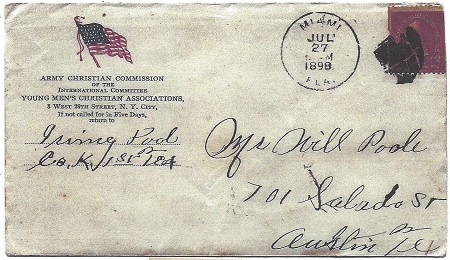 ARMY CHRISTIAN COMMISSION
OF THE
INTERNATIONAL COMMITTEE
YOUNG MEN'S CHRISTIAN ASSOCIATIONS,
3 WEST 29TH STREET, N. Y. CITY,
If not called for in Five Days,
return to
Irving Pool
Co. K, 1st Tex
MIAMI
JUL
27
M
1898
FLA.
Mr Will Poole
701 Salado St
Austin